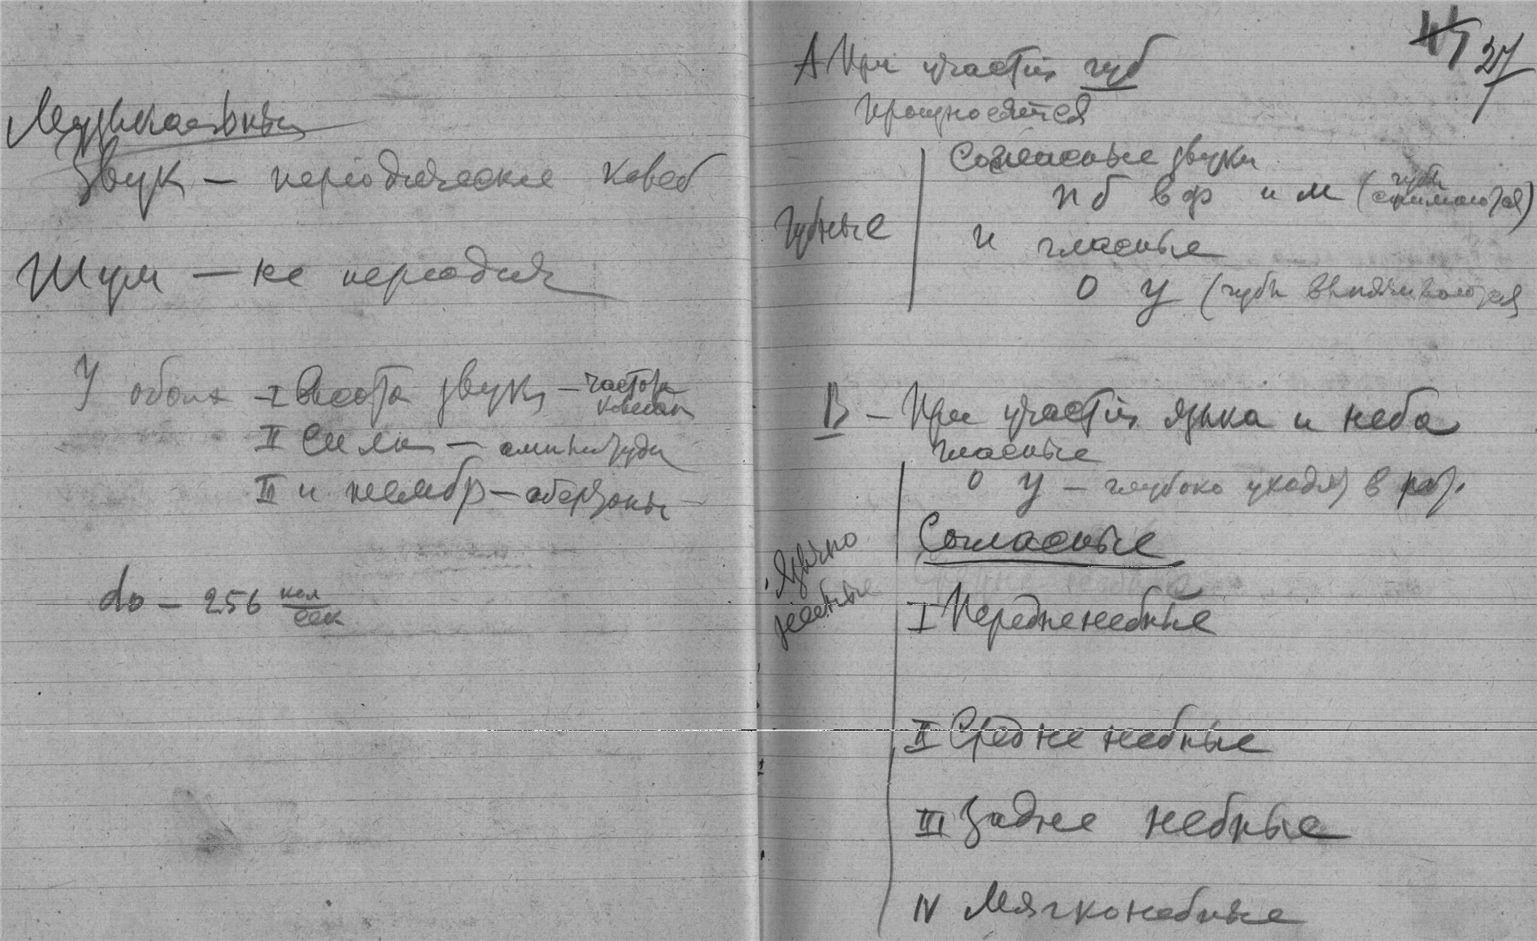 Музыкальный
Звук — периодические колеб
Шум — не периодич
У обоих I Высота звука — частота
колебан
II Сила — амплитуды
III и тембр — обертоны
do — 256 кол
сек
А При участии губ
произносятся
Согласные звуки
п б в ф и м (губы
сжимаются)
Губные
и гласные
о у (губы выпячиваются
В — При участии языка и неба
гласные
о у — глубоко уходят в рот.
Согласные
Язычно
небные
I Передненебные
II Средне небные
III Задне небные
IV Мягконебные
27